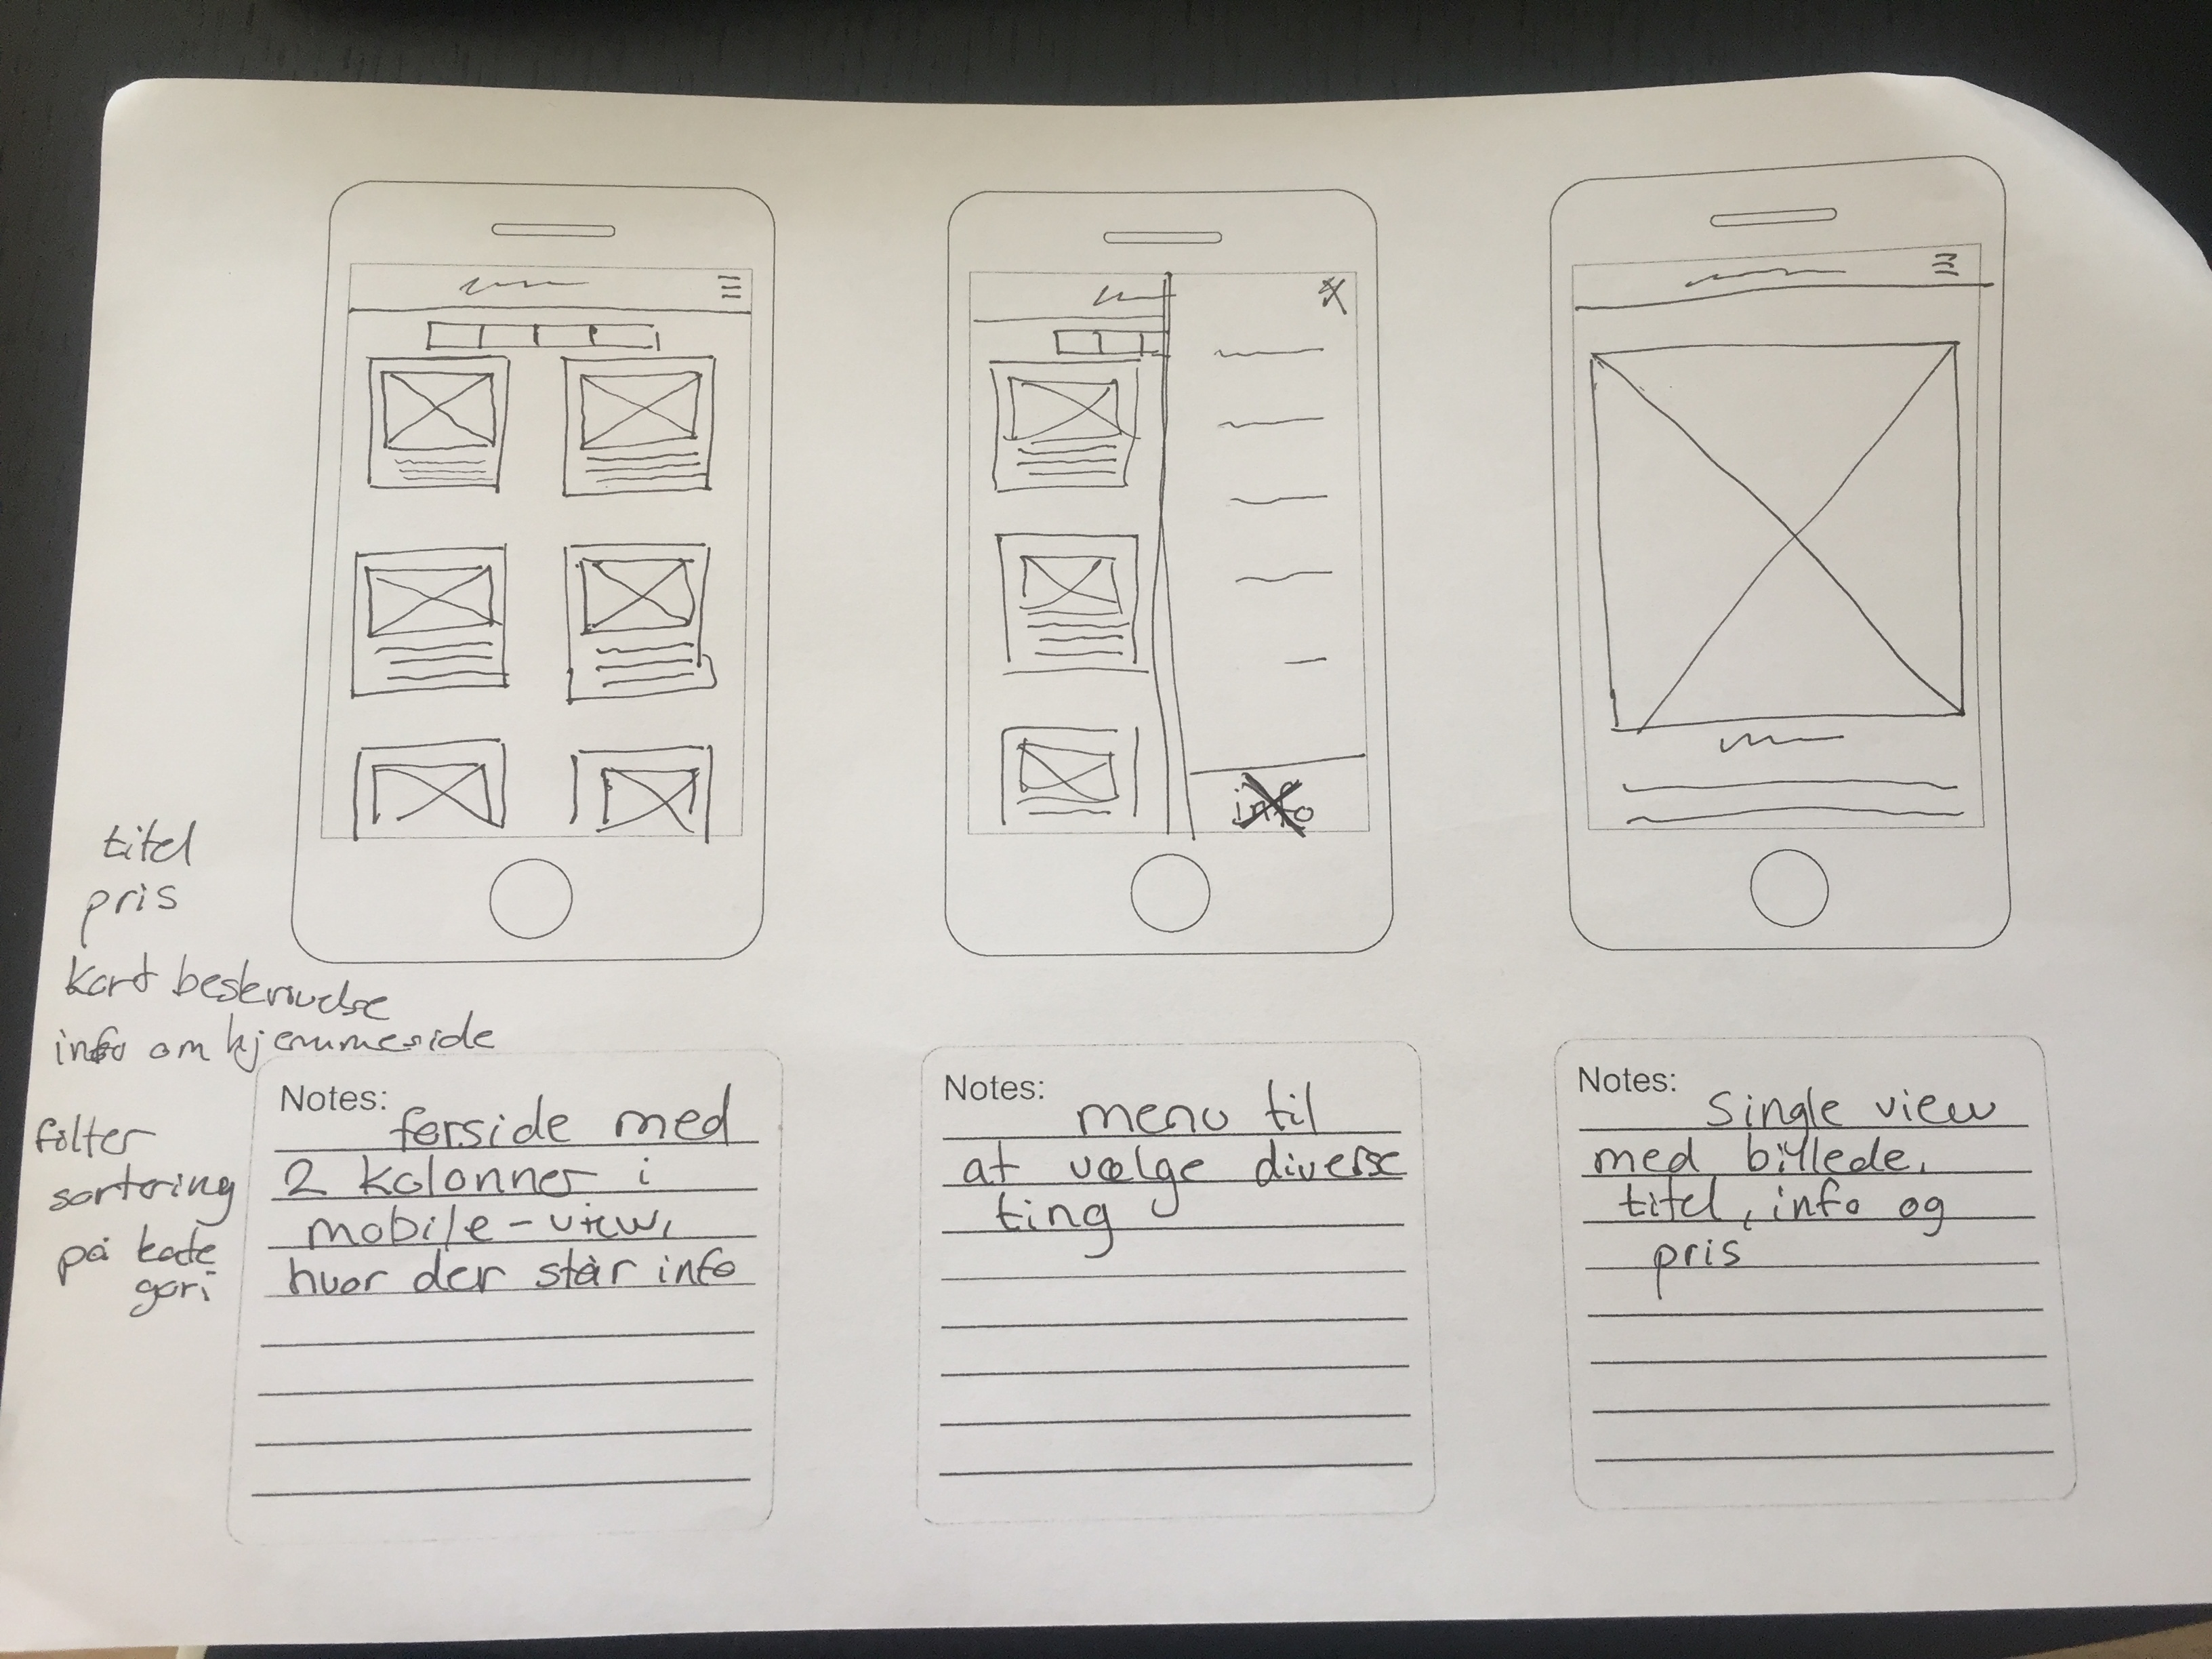 info
titel
pris
kort beskrivelse
info om hjemmeside
filter
sortering
på kate
gori
Notes:
forside med
2 kolonner i
mobile-view,
hvor der står info
Notes:
menu til
at vælge diverse
ting
Notes:
Single view
med billede,
titel, info og
pris